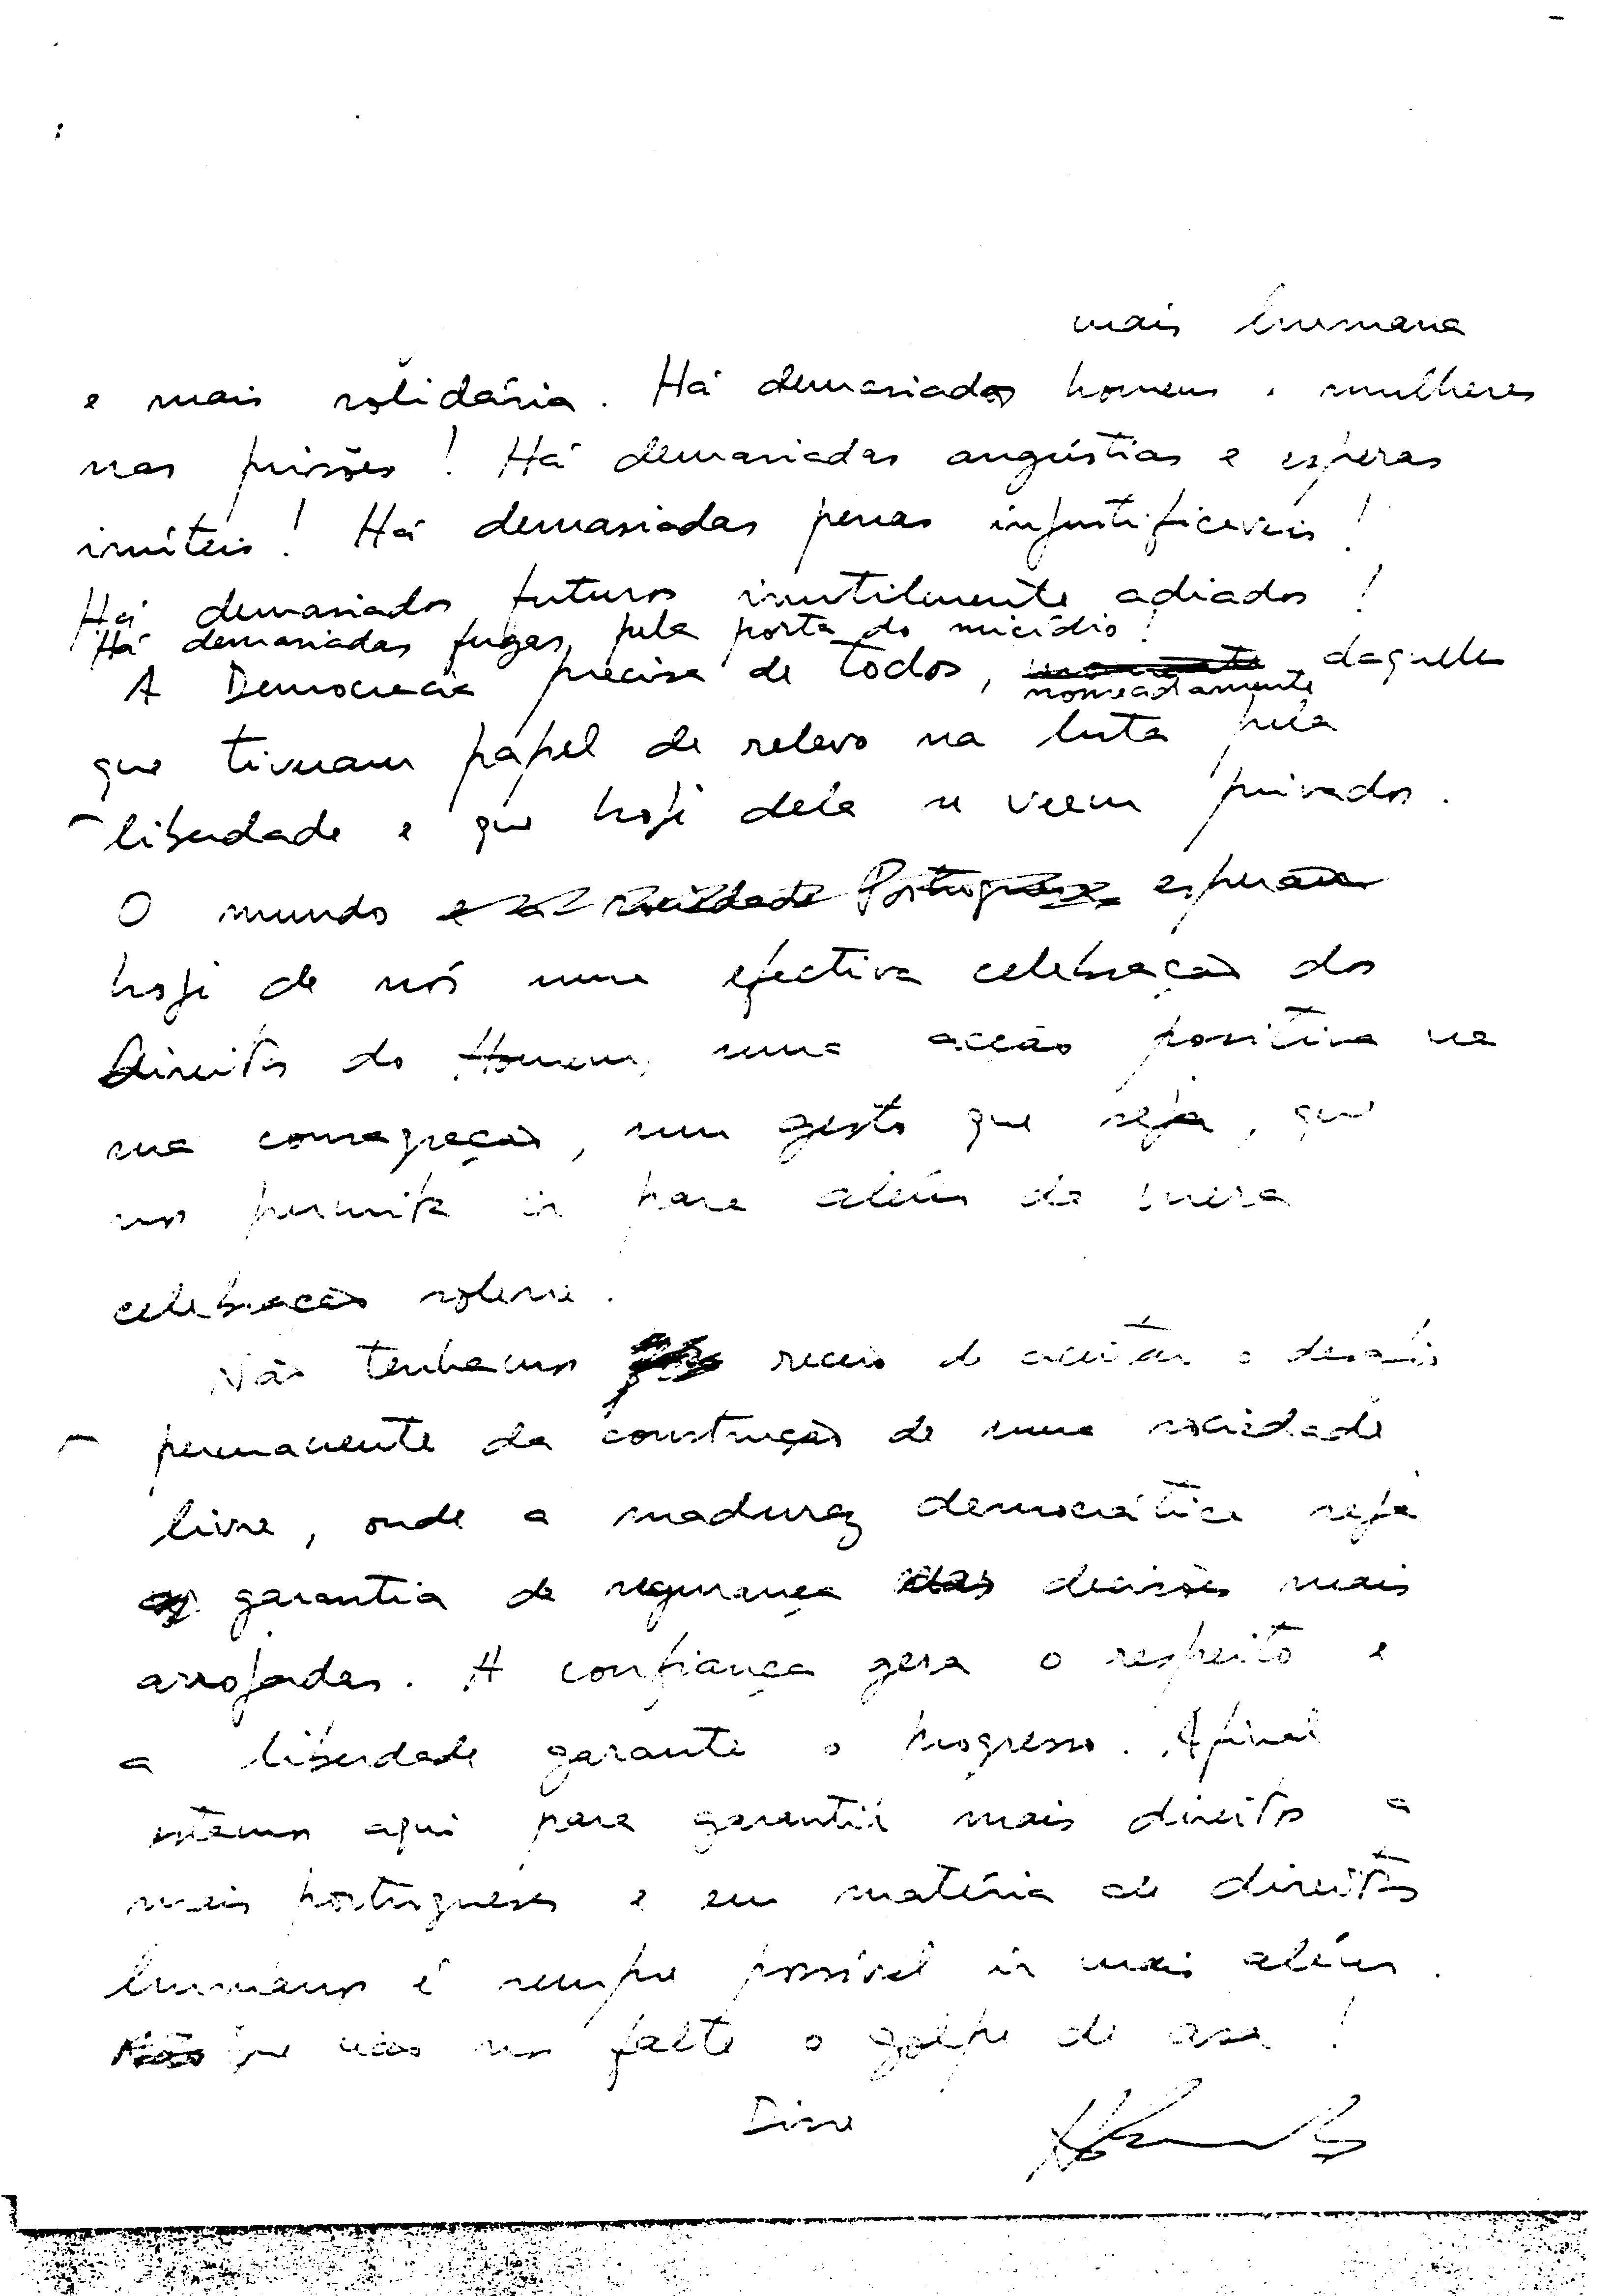 mais humana
e mais solidária. Há demasiados homens e mulheres
nas prisões! Há demasiadas angústias e esperas
inúteis! Há demasiadas penas injustificáveis!
Há demasiados futuros inutilmente adiados!
Há demasiadas fugas, pela porta do suicídio!
A Democracia precisa de todos, daqueles
nomeadamente
que tiveram papel de relevo na luta pela
liberdade e que hoje dela se vêem privados.
O mundo e a sociedade Portuguesa esperam
hoje de nós uma efectiva celebração dos
Direitos do Homem, uma acção positiva na
sua consagração, um gesto que seja, que
nos permita ir para além da mera
celebração solene.
Não tenhamos receio de aceitar o desafio
permanente da construção de uma sociedade
livre, onde a madurez democrática seja
garantia de segurança das decisões mais
arrojadas. A confiança gera o respeito e
a liberdade garante o progresso. Afinal
estamos aqui para garantir mais direitos a
mais portugueses e em matéria de direitos
humanos é sempre possível ir mais além.
Não Que não nos falte o golpe de asa!
Disse